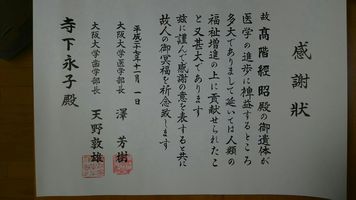 感謝状
故 高階経昭殿の御遺体が
医学の進歩に裨益するところ
多大でありまして延いては人類の
福祉増進の上に貢献せられたこ
と又甚大であります
茲に謹んで感謝の意を表すると共に
故人の御冥福を祈念致します
平成二十七年十一月一日
大阪大学医学部長 澤 芳樹
大阪大学歯学部長 天野敦雄
寺下永子殿